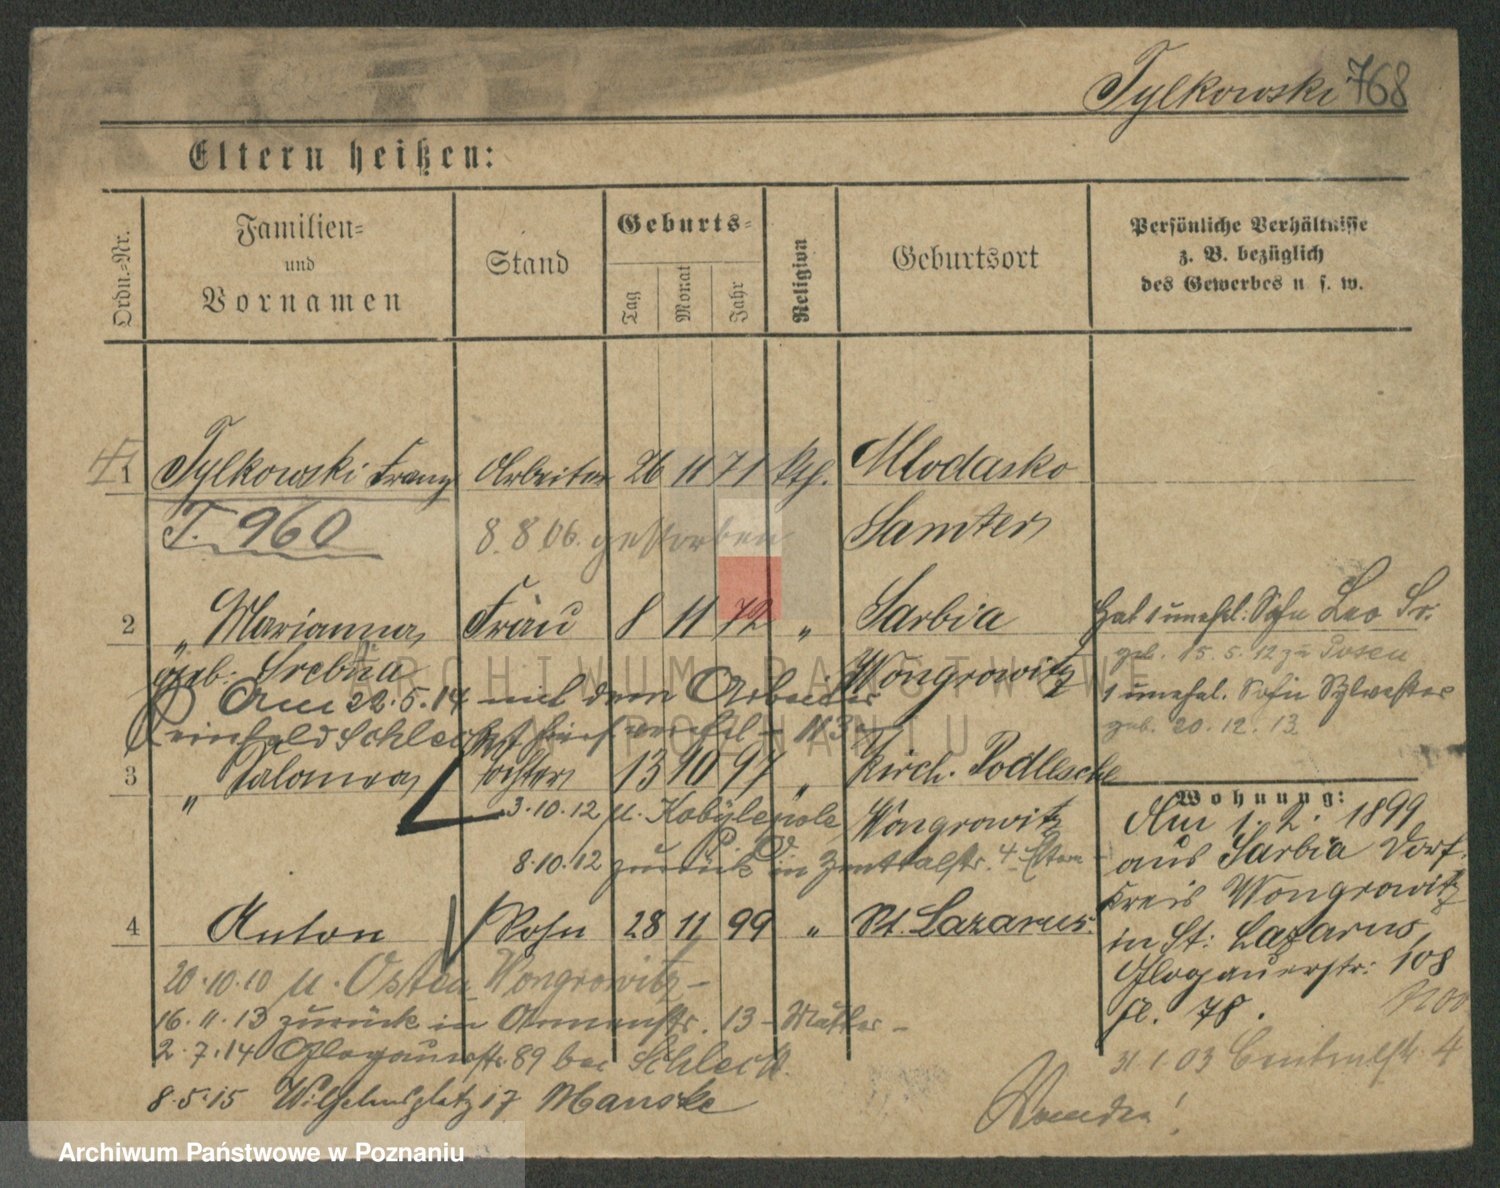 Tylkowski 768
Eltern heißen:
Ordn.-Nr.
Familien-
und
Vornamen
Stand
Geburts-
Tag
Monat
Jahr
Religion
Geburtsort
Persönliche Verhältnisse
z. B. bezüglich
des Gewerbes u. s. w.
1 Tylkowski Franz Arbeiter 26 11 71 kth. Mlodasko
T. 960 8.8.06. gestorben Samter
2 " Marianna Frau 8 11 72 " Sarbia Hat 1 unehel. Sohn Leo Sr.
geb. Srebna Wongrowitz geb. 15.5.12 zu Posen
Am 22.5.14 mit dem Arbeiter 1 unehel. Sohn Sylvester
Reinhold Schleck geb. 20.12.13.
3 " Salomea Tochter 13 10 97 " Kirch. Podlesche
3.10.12 u. Kobylepole Wongrowitz
8.10.12 zurück in Zentralstr. 4
4 Anton Sohn 28 11 99 " St. Lazarus
20.10.10 u. Osten Wongrowitz -
16.11.13 zurück in 13 - Mutter -
2.7.14 Glogauerstr 89 bei Schleck
8.5.15 Wilhelmsplatz 17 Manske
Wohnung:
Am 1. 2. 1899
aus Sarbia Dorf.
Kreis Wongrowitz
in St. Lazarus,
Glogauerstr. 108
fl. 78.
31.1.03 Centralstr. 4
Archiwum Państwowe w Poznaniu
ARCHIWUM PAŃSTWOWE
W POZNANIU